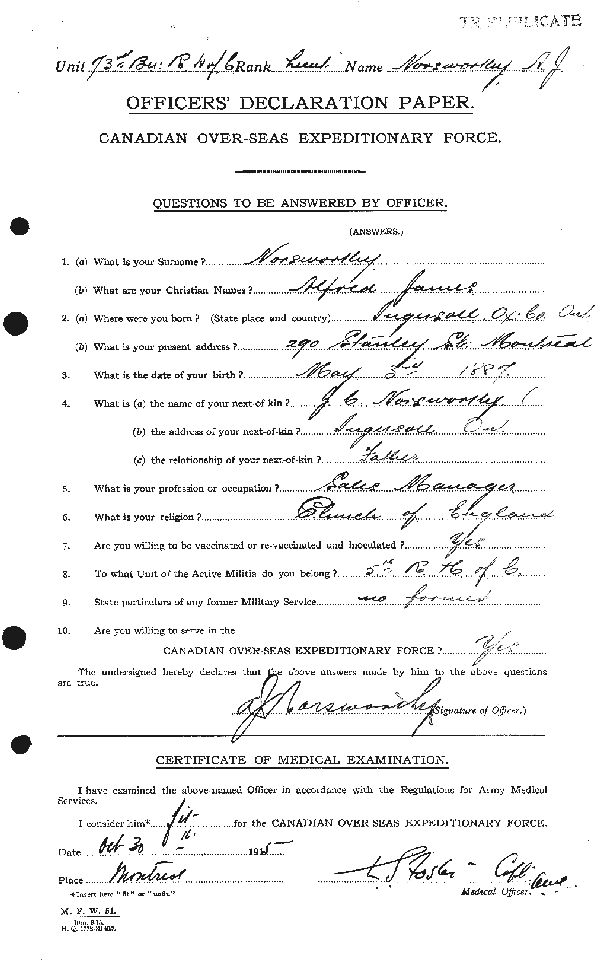 TRIPLICATE
Unit 73rd Bn: R H of C Rank Lieut Name Norsworthy A J
OFFICERS' DECLARATION PAPER.
CANADIAN OVER-SEAS EXPEDITIONARY FORCE.
QUESTIONS TO BE ANSWERED BY OFFICER.
(ANSWERS.)
1. (a) What is your Surname? Norsworthy
(b) What are your Christian Names? Alfred James
2. (a) Where were you born? (State place and country) Ingersoll Ox. Co Ont
(b) What is your present address? 290 Stanley St. Montreal
3. What is the date of your birth? May 3rd 1887.
4. What is (a) the name of your next-of kin? J. C. Norsworthy
(b) the address of your next-of-kin? Ingersoll Ont
(c) the relationship of your next-of-kin? Father
5. What is your profession or occupation? Sales Manager
6. What is your religion? Church of England
7. Are you willing to be vaccinated or re-vaccinated and inoculated? Yes
8. To what Unit of the Active Militia do you belong? 5th R H of C.
9. State particulars of any former Military Service. no former
10. Are you willing to serve in the
CANADIAN OVER-SEAS EXPEDITIONARY FORCE? Yes
The undersigned hereby declares that the above answers made by him to the above questions
are true.
A J Norsworthy (Signature of Officer.)
CERTIFICATE OF MEDICAL EXAMINATION.
I have examined the above-named Officer in accordance with the Regulations for Army Medical
Services.
I consider him* fit for the CANADIAN OVER-SEAS EXPEDITIONARY FORCE.
Date Oct 30 1915
Place Montreal Foster Capt
Medical Officer.
*Insert here "fit" or "unfit."
M. F. W. 51.